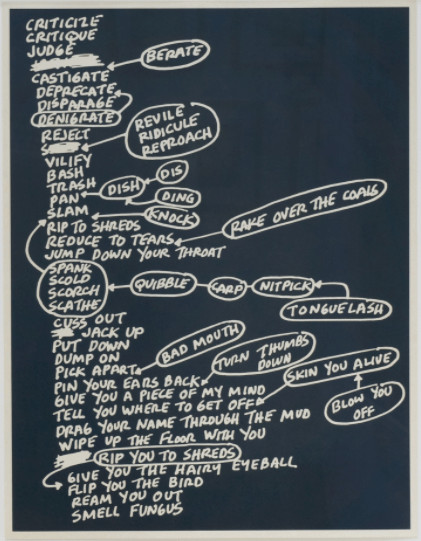 CRITICIZE
CRITIQUE
JUDGE
BERATE
CASTIGATE
DEPRECATE
DISPARAGE
DENIGRATE
REVILE
RIDICULE
REPROACH
REJECT
VILIFY
BASH
TRASH
DIS
DISH
PAN
DING
SLAM
KNOCK
RIP TO SHREDS
RAKE OVER THE COALS
REDUCE TO TEARS
JUMP DOWN YOUR THROAT
SPANK
SCOLD
SCORCH
SCATHE
QUIBBLE
CARP
NITPICK
TONGUELASH
CUSS OUT
JACK UP
PUT DOWN
DUMP ON
BAD MOUTH
PICK APART
TURN THUMBS
DOWN
PIN YOUR EARS BACK
SKIN YOU ALIVE
GIVE YOU A PIECE OF MY MIND
TELL YOU WHERE TO GET OFF
BLOW YOU
OFF
DRAG YOUR NAME THROUGH THE MUD
WIPE UP THE FLOOR WITH YOU
RIP YOU TO SHREDS
GIVE YOU THE HAIRY EYEBALL
FLIP YOU THE BIRD
REAM YOU OUT
SMELL FUNGUS